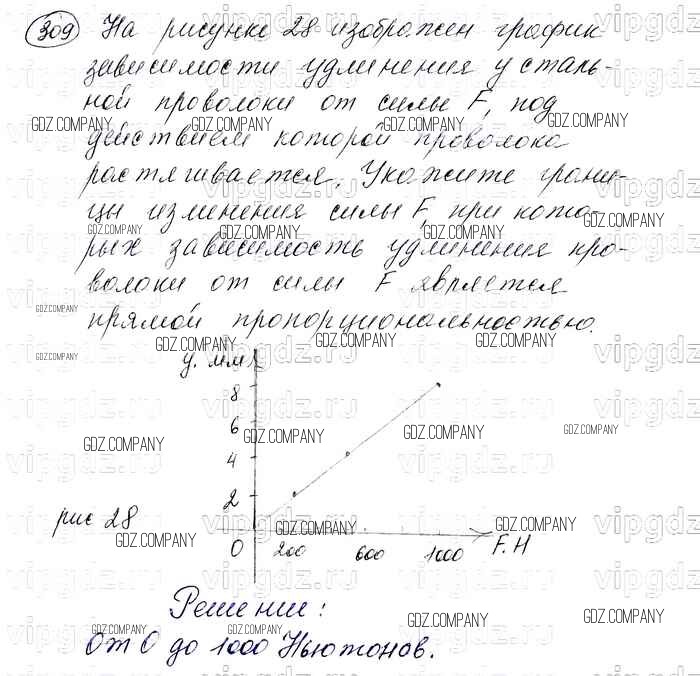 309 На рисунке 28 изображен график
зависимости удлинения y сталь-
ной проволоки от силы F, под
действием которой проволока
растягивается. Укажите грани-
цы изменения силы F, при кото-
рых зависимость удлинения про-
волоки от силы F является
прямой пропорциональностью.
y. мм
8
6
4
2
рис 28
0 200 600 1000 F. H
Решение:
От 0 до 1000 Ньютонов.
GDZ.COMPANY
vipgdz.ru